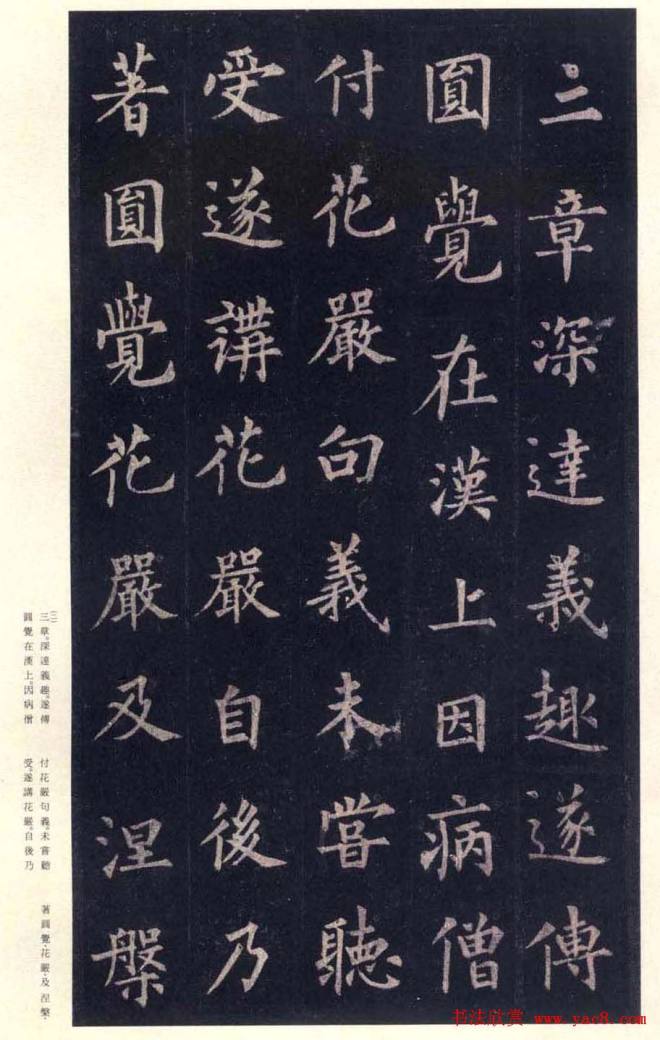 三章深達義趣遂傳
圓覺在漢上因病僧
付花嚴句義未嘗聽
受遂講花嚴自後乃
著圓覺花嚴及涅槃
三章。深達義趣。遂傳
圓覺在漢上。因病僧
付花嚴句義。未嘗聽
受。遂講花嚴。自後乃
著圓覺、花嚴、及涅槃、
书法欣赏 www.yac8.com